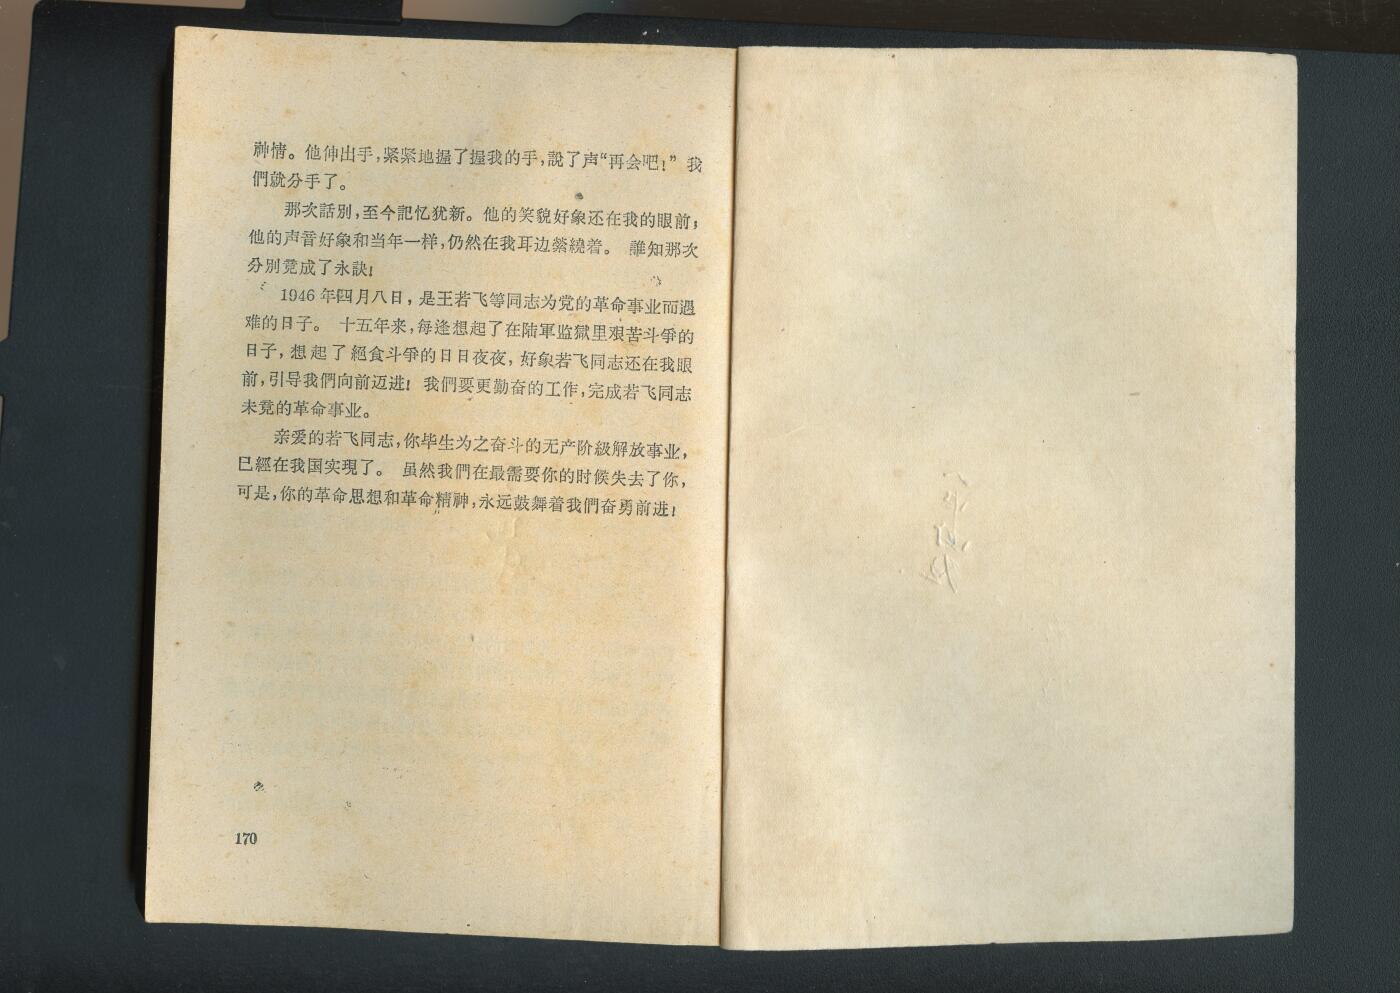 神情。他伸出手，紧紧地握了握我的手，說了声“再会吧！” 我
們就分手了。
那次話別，至今記忆犹新。他的笑貌好象还在我的眼前；
他的声音好象和当年一样，仍然在我耳边縈繞着。 誰知那次
分别竟成了永訣！
1946年四月八日，是王若飞等同志为党的革命事业而遇
难的日子。 十五年来，每逢想起了在陆軍监獄里艰苦斗爭的
日子，想起了絕食斗爭的日日夜夜，好象若飞同志还在我眼
前，引导我們向前迈进！ 我們要更勤奋的工作，完成若飞同志
未竟的革命事业。
亲爱的若飞同志，你毕生为之奋斗的无产阶級解放事业，
已經在我国实現了。 虽然我們在最需要你的时候失去了你，
可是，你的革命思想和革命精神，永远鼓舞着我們奋勇前进！
170